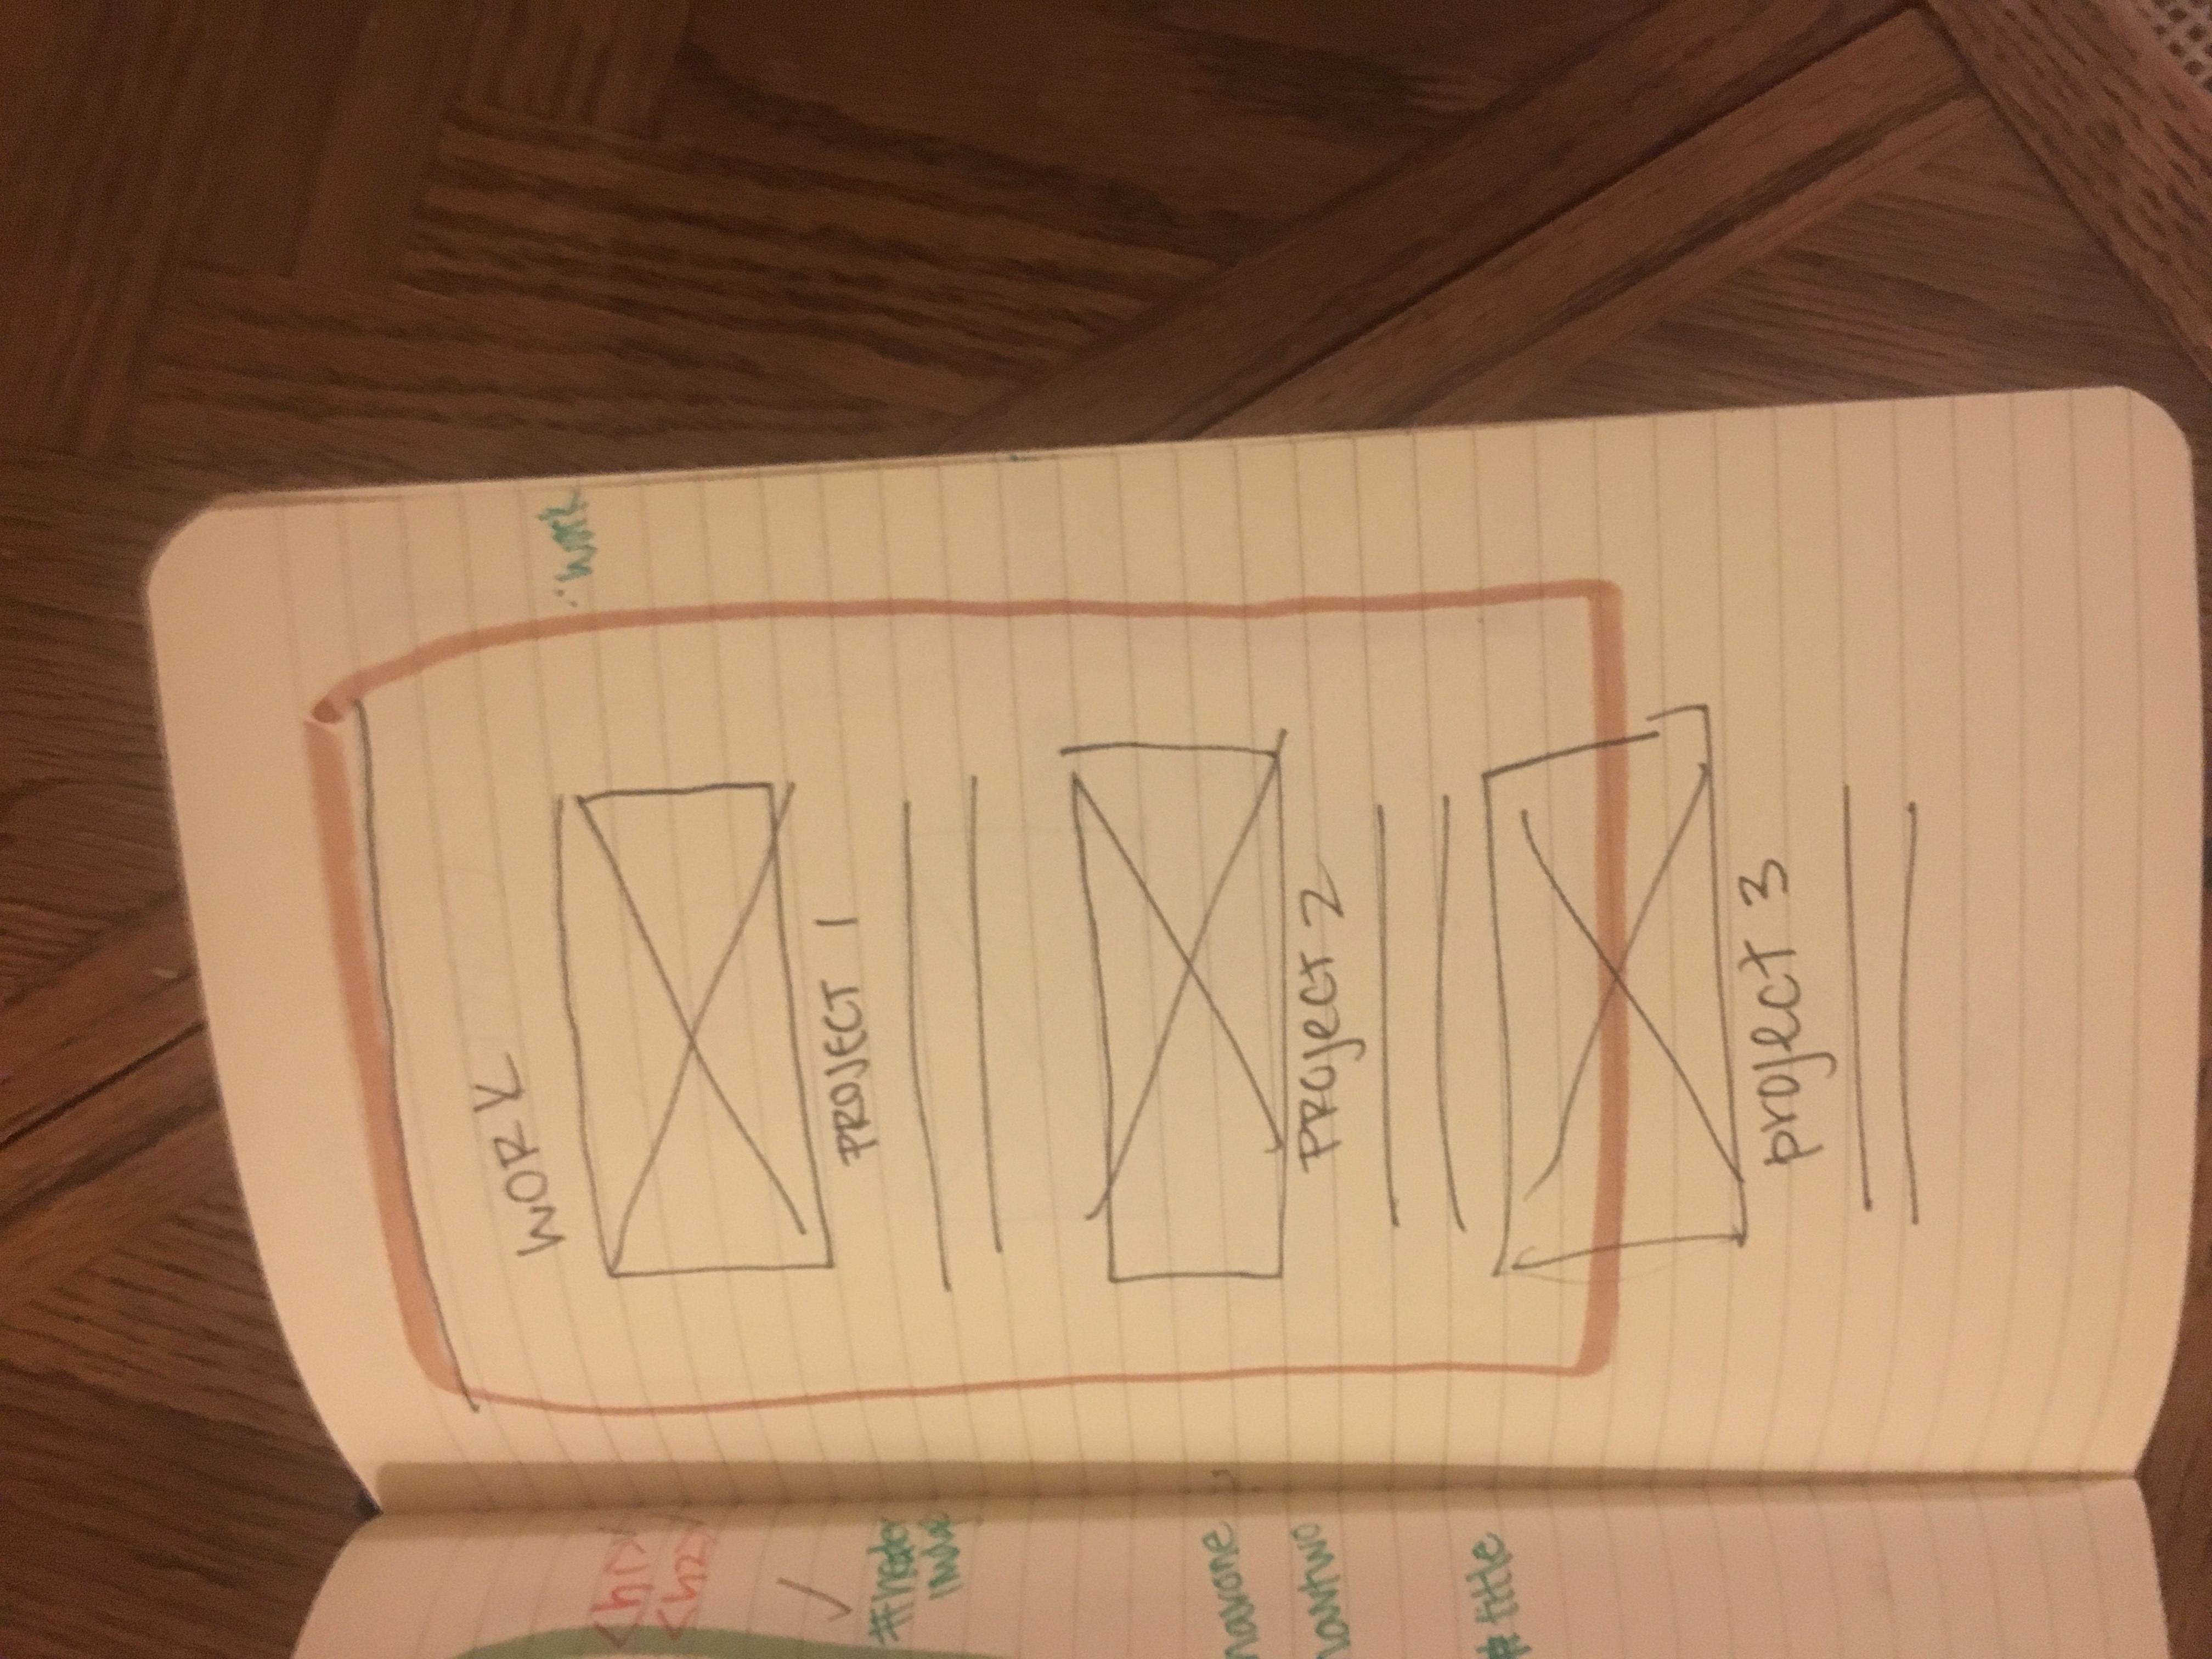 <h1>
<h2>
#header
navone
navtwo
#title
WORK
work
PROJECT 1
PROject 2
project 3